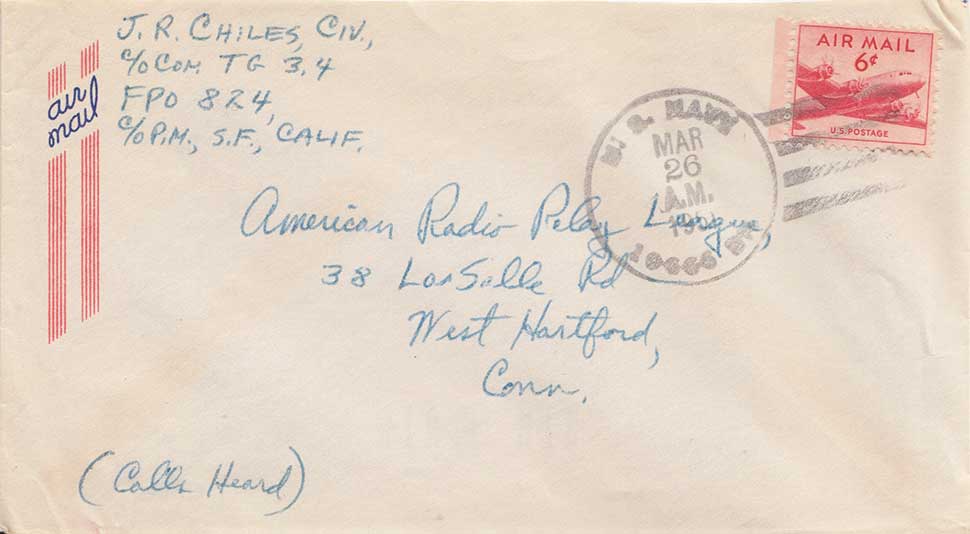 J. R. CHILES, CIV.,
c/o COM. TG 3.4
FPO 824,
c/o P.M., S.F., CALIF.
air
mail
AIR MAIL
6¢
U.S. POSTAGE
U. S. NAVY
MAR
26
A.M.
American Radio Relay League,
38 LaSalle Rd
West Hartford,
Conn.
(Calls Heard)